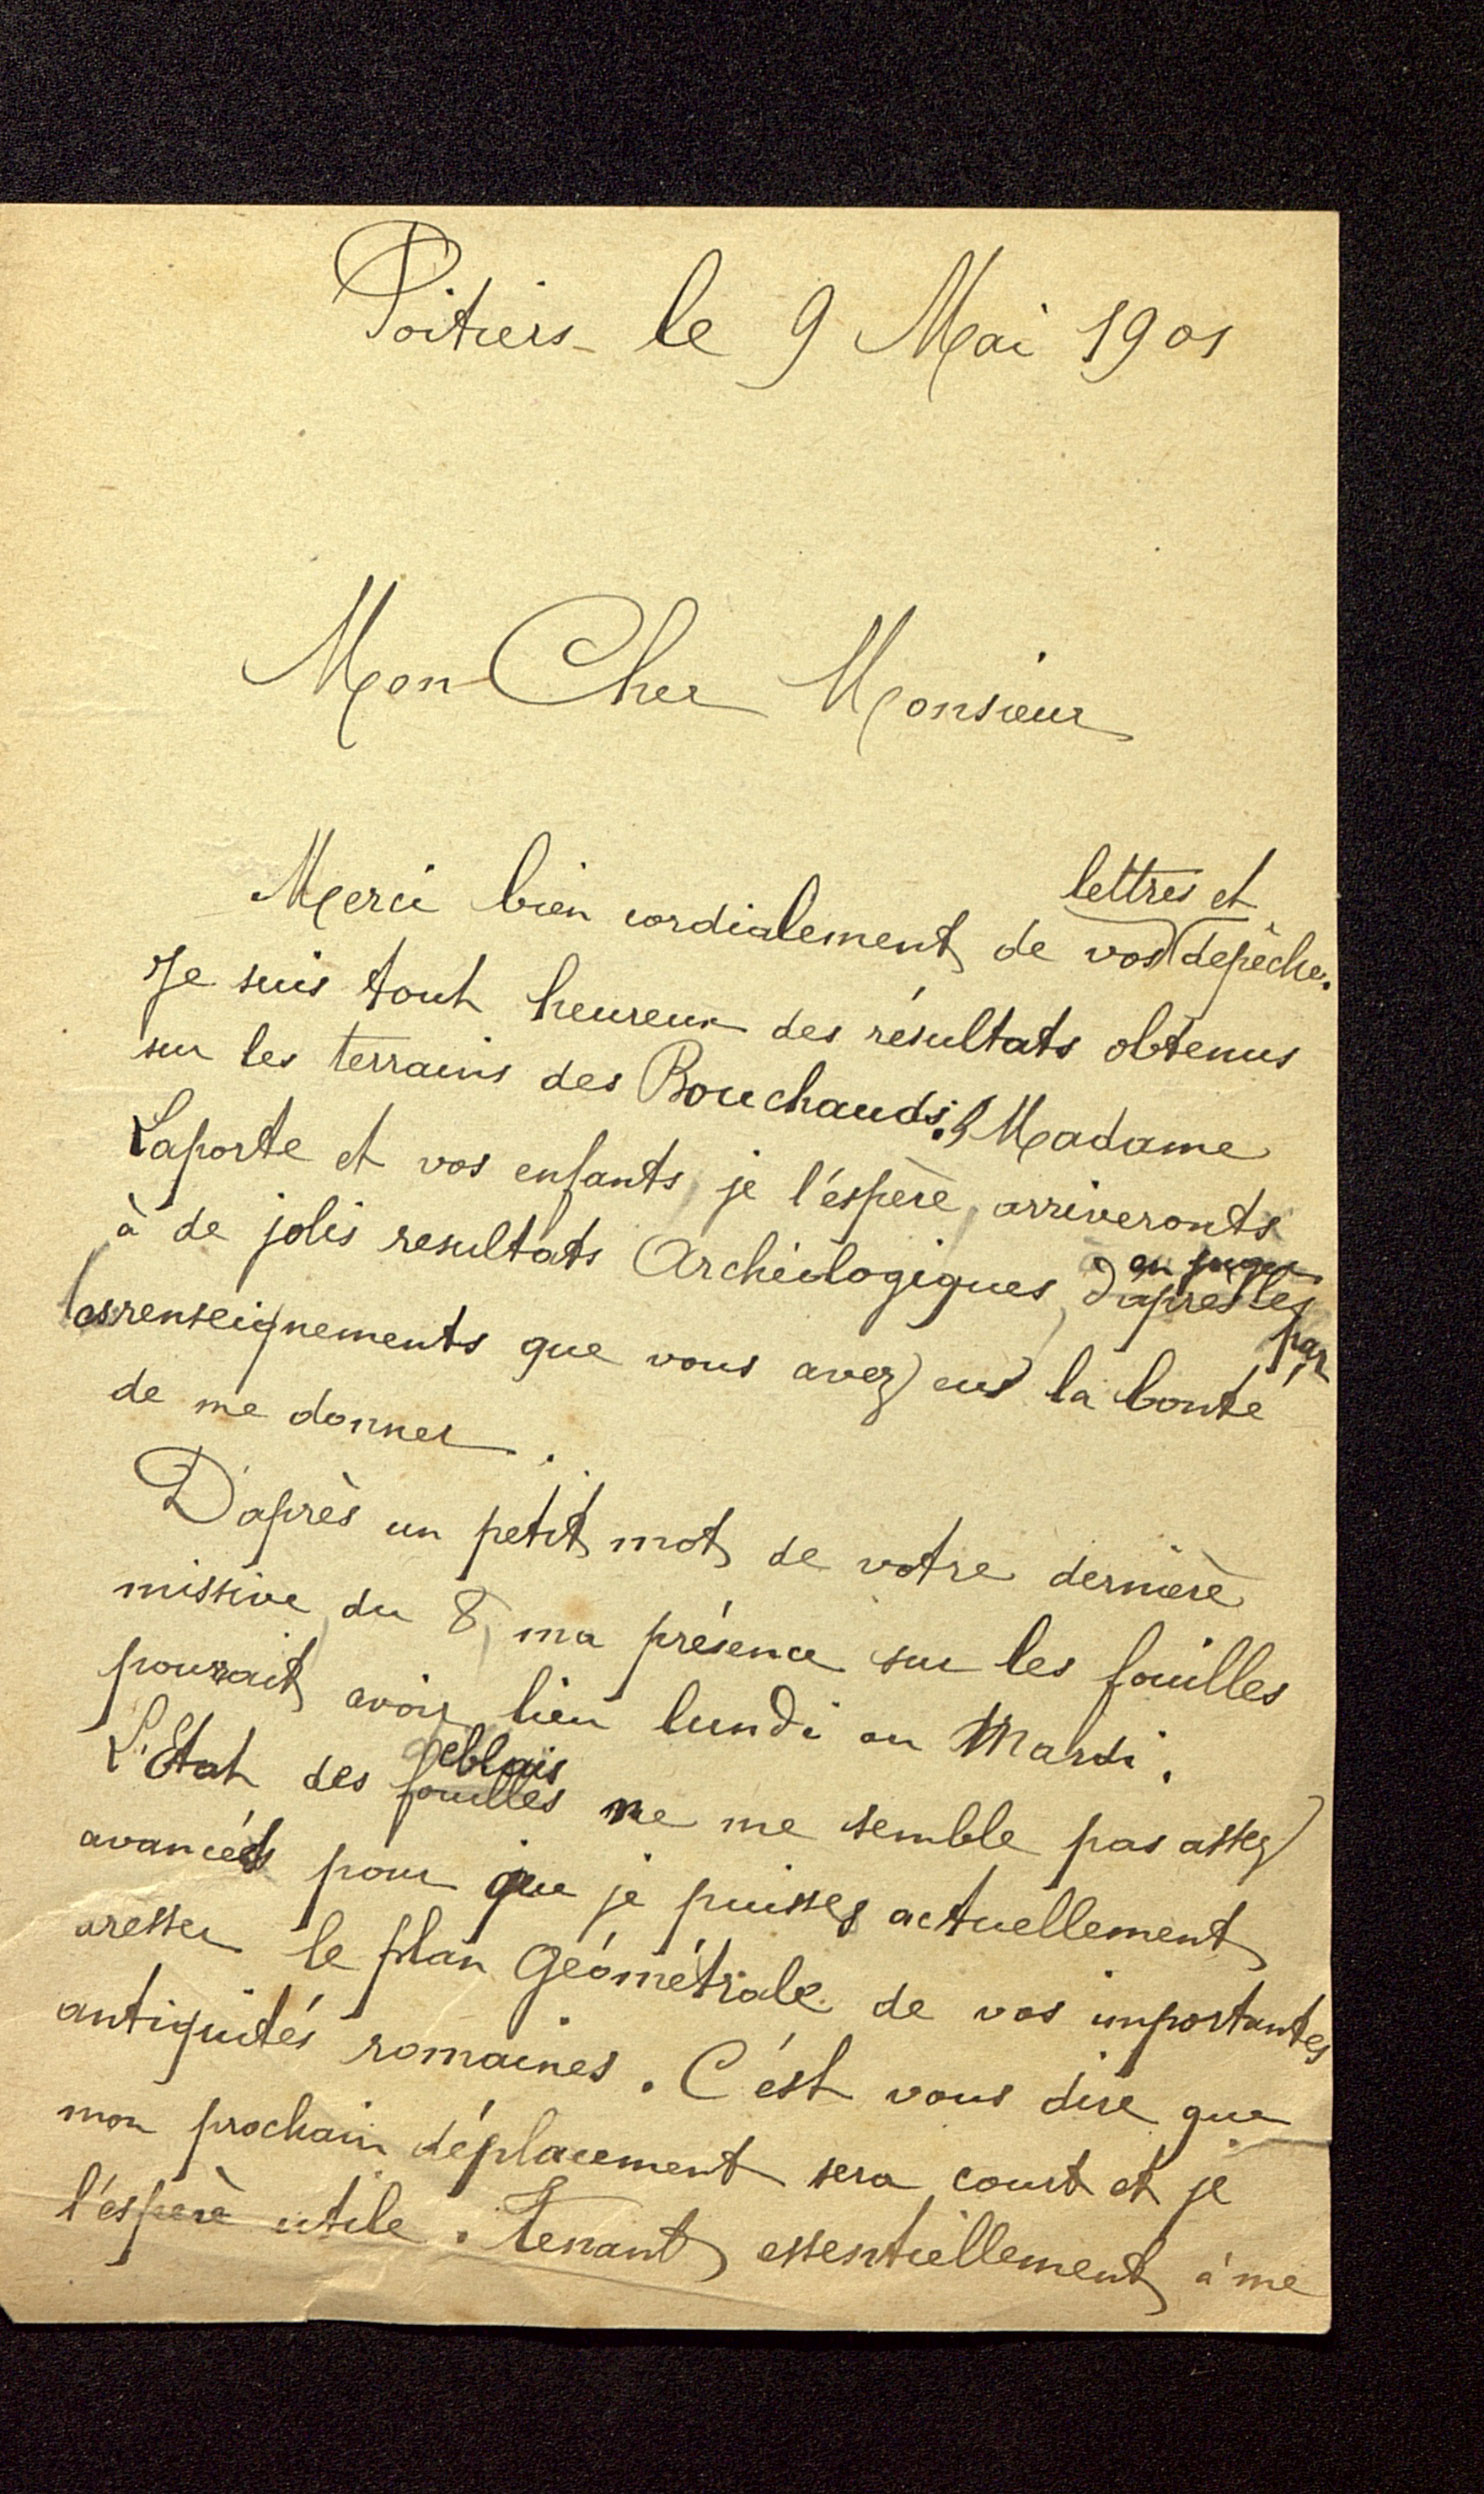 Poitiers le 9 Mai 1901
Mon Cher Monsieur
lettres et
Merci bien cordialement de vos depêche.
Je suis tout heureux des résultats obtenus
sur les terrains des Bouchauds. Madame
Laporte et vos enfants, je l'éspère, arriveronts
à de jolis resultats Archéologiques, d'apres les
en juger
par
les renseignements que vous avez eus la bonté
de me donner.
D'après un petit mot de votre dernière
missive du 8, ma présence sur les fouilles
pourrait avoir lieu lundi ou Mardi.
deblais
L'Etat des fouilles ne me semble pas assez
avancés pour que je puisses actuellement
dresser le plan Géométrale de vos importantes
antiquités romaines. C'ést vous dire que
mon prochain déplacement sera court et je
l'éspère utile. Tenant essentiellement à me